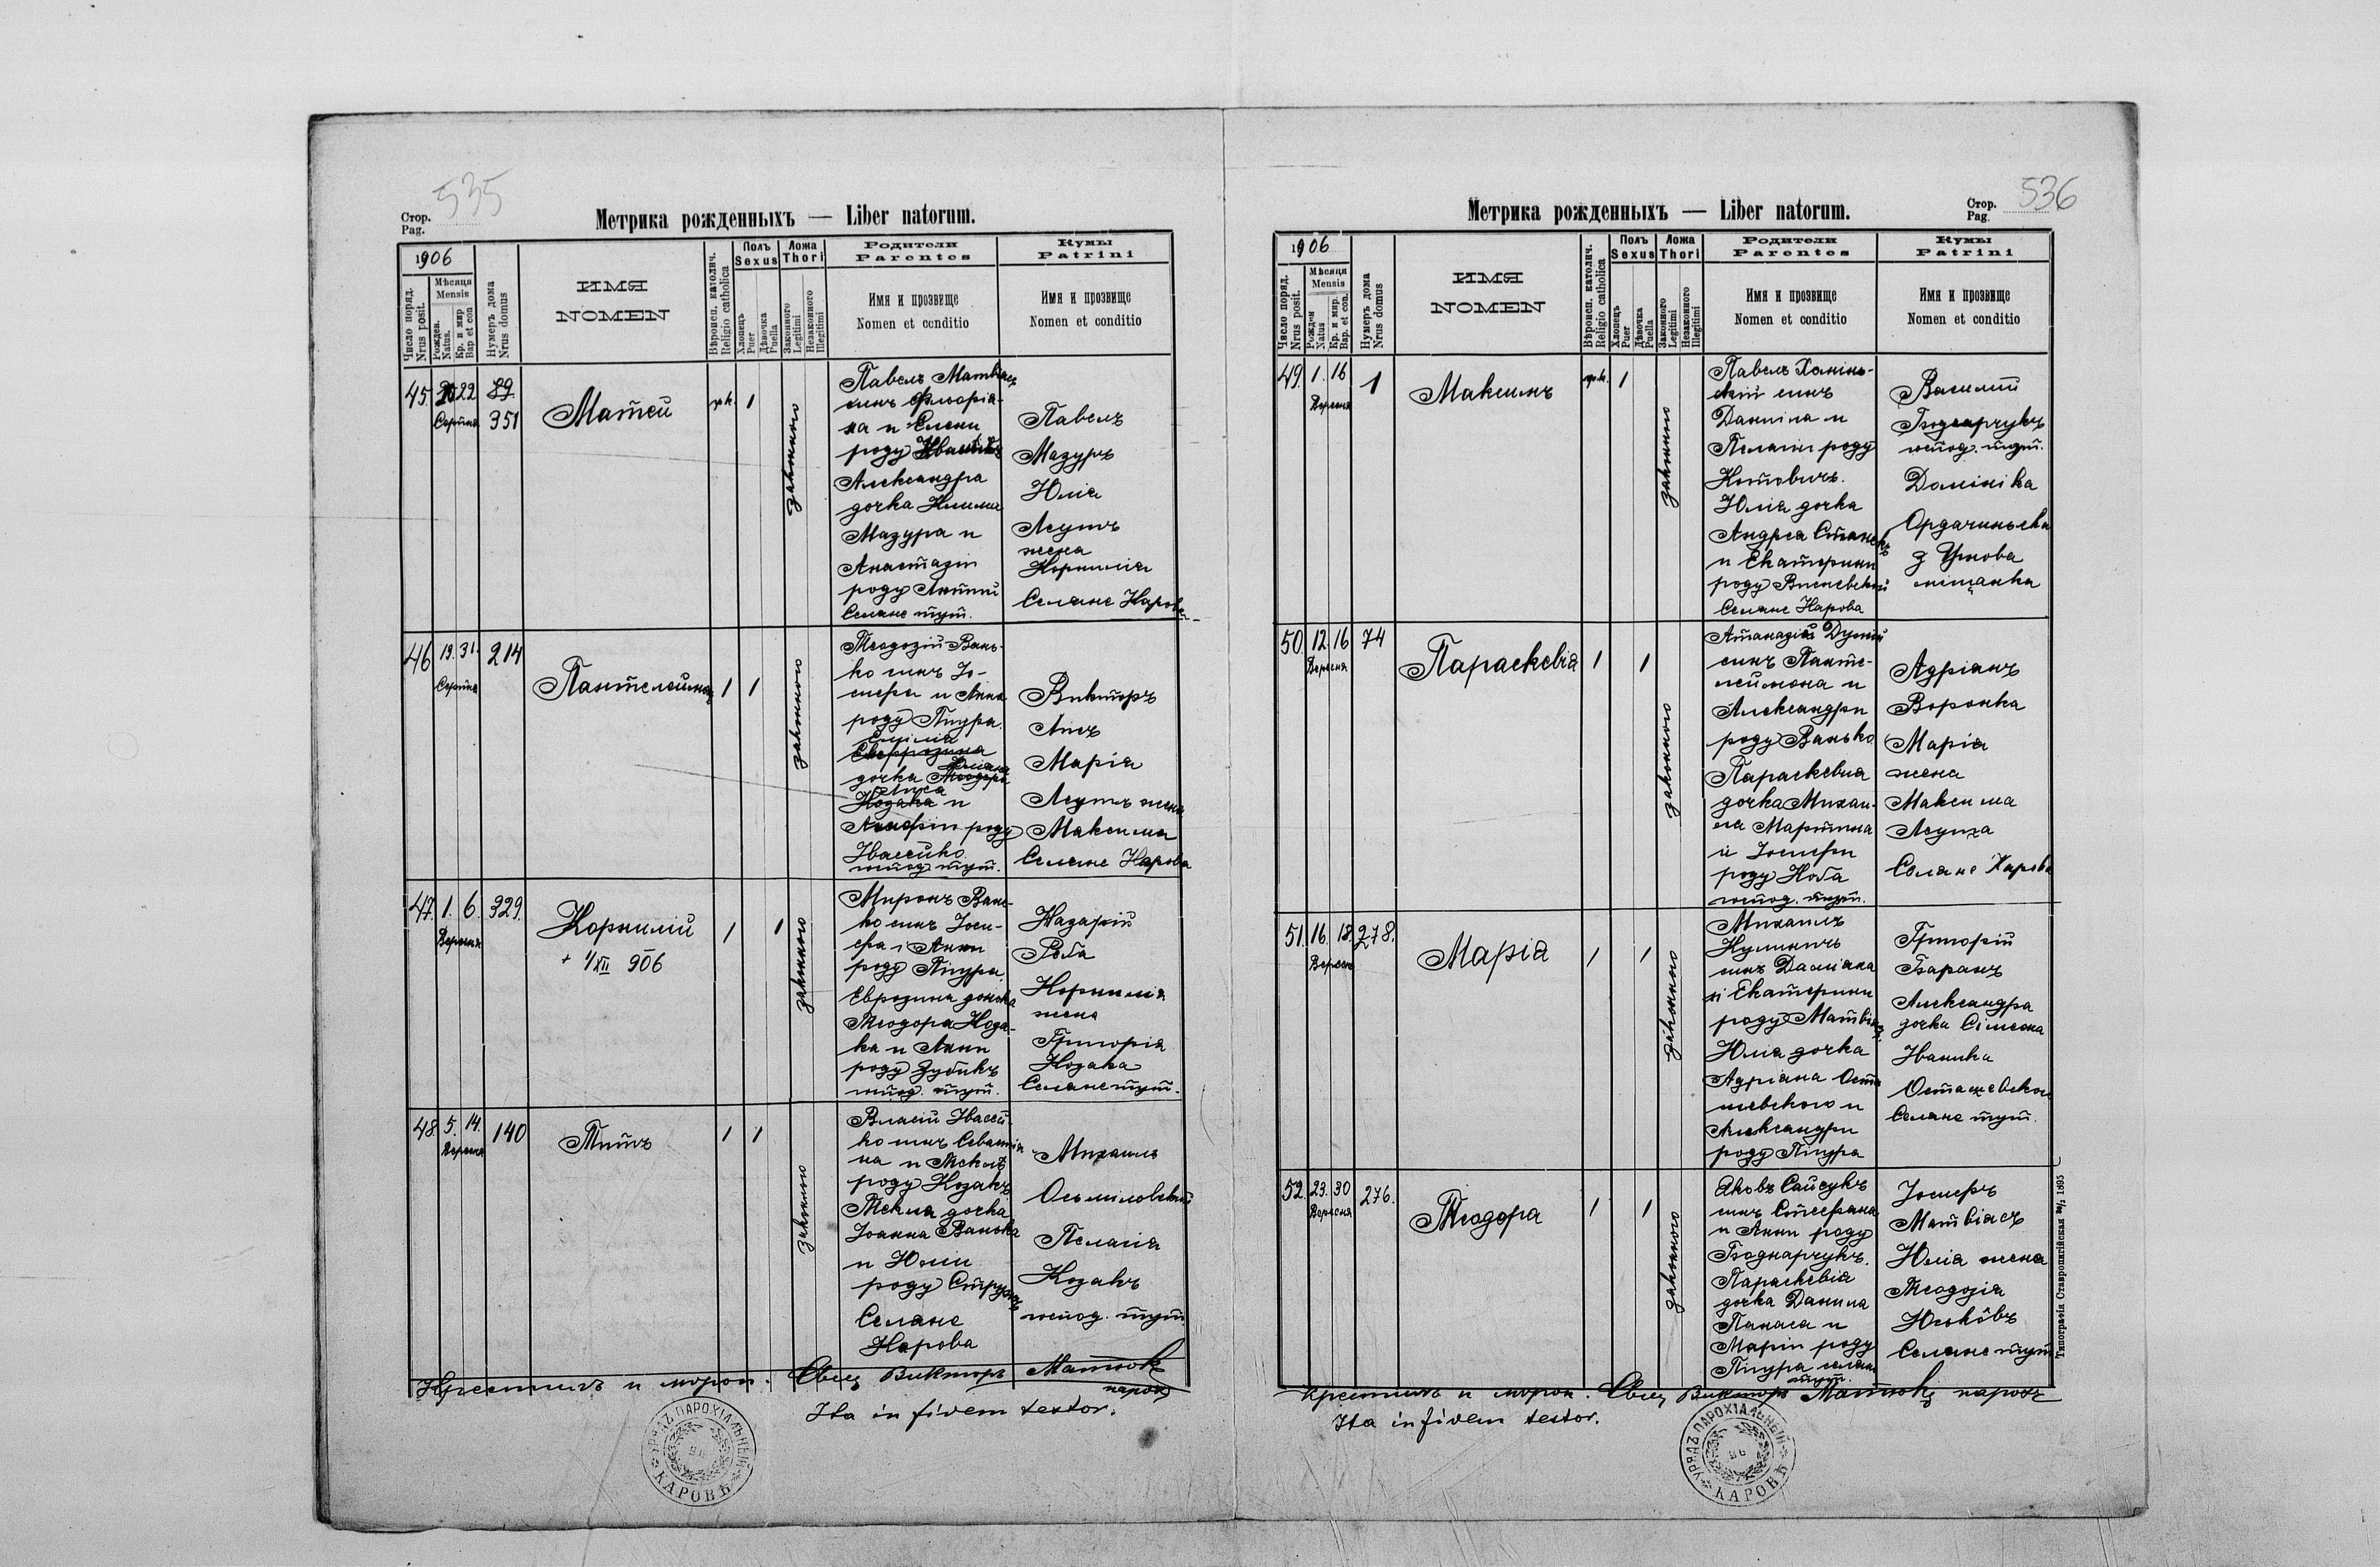 535
Стор.
Pag.
Метрика рожденныхъ — Liber natorum.
1906
Число поряд.
Nrus posit.
Мѣсяця
Mensis
Рожден.
Natus.
Кр. и мир
Bap et con
Нумеръ дома
Nrus domus
ИМЯ
NOMEN
Вѣроисп. католич.
Religio catholica
Полъ
Sexus
Хлопець
Puer
Дѣвочка
Puella
Ложа
Thori
Законного
Legitimi
Незаконного
Illegitimi
Родители
Parentes
Имя и прозвище
Nomen et conditio
Кумы
Patrini
Имя и прозвище
Nomen et conditio
45. 22 89.
Серпня 351
Матей
гр.к. 1
законного
Павелъ
синъ Флоріа-
на и Елени
роду
Александра
дочка Клима
Мазура и
Анастазіи
роду
Селяне тут.
Павелъ
Мазуръ
Юлія
жена
Корнилія
Селяне Карова
46 19. 31. 214
Серпня
Пантелеймонъ
1 1
законного
Теодозій Вань-
ко синъ Іо-
сифа и Анна
роду Піщура
Емілія
Евфрозина
дочка Теодора
Козака и
роду
Івасейко
господ. тут.
Викторъ
Марія
жена
Максима
Селяне Карова
47. 1. 6. 329.
Вересня
Корнилій
+ 1/XII 906
1 1
законного
Миронъ Вань-
ко синъ Іоси-
фа і Анни
роду Піщура
Еврозина дочка
Теодора Коза-
ка и Анни
роду Зубикъ
господ. тут.
Назарій
Роба
Корнилія
жена
Григорія
Козака
Селяне тут.
48 5. 14. 140
Вересня
Титъ
1 1
законного
Власій Івасей-
ко синъ Севастія
на и Теклѣ
роду Козакъ
Текля дочка
Іоанна Ванька
и Юліи
роду
Селяне
Карова
Михаилъ
Осьміловскій
Пелагія
Козакъ
господ. тут
Крестилъ и мѵроп. Свщ Викторъ Матюкъ
парох
Ita in fidem testor.
УРЯДЪ ПАРОХІАЛЬНЫЙ
КАРОВЪ
Стор.
Pag.
536
Метрика рожденныхъ — Liber natorum.
1906
Число поряд.
Nrus posit.
Мѣсяця
Mensis
Рожден
Natus
Кр. и мир.
Bap. et con.
Нумеръ дома
Nrus domus
ИМЯ
NOMEN
Вѣроисп. католич.
Religio catholica
Полъ
Sexus
Хлопець
Puer
Дѣвочка
Puella
Ложа
Thori
Законного
Legitimi
Незаконного
Illegitimi
Родители
Parentes
Имя и прозвище
Nomen et conditio
Кумы
Patrini
Имя и прозвище
Nomen et conditio
49. 1. 16 1
Вересня
Максимъ
гр.к. 1
законного
Павелъ Хомінь-
скій синъ
Даниіла и
Пелагіи роду
Котовичъ.
Юлія дочка
Андрея
и Екатерини
роду
Селяне Карова
Василій
Боднарчукъ
господ. тут.
Домініка
Ордачиньска
з Угнова
міщанка
50. 12. 16 74
Вересня
Параскевія
1 1
законного
Атаназій
синъ Панте-
леймона и
Александри
роду Ванько
Параскевия
дочка Михаи-
ла Мартина
и Іосифи
роду Коба
господ. тут.
Адріанъ
Воронка
Марія
жена
Максима
Селяне Карова
51. 16. 18. 278.
Вересня
Марія
1 1
законного
Михаилъ
Куликичъ
синъ Даміана
и Екатерини
роду
Юлія дочка
Адріана Оста
шевского и
Александри
роду Піщура
Григорій
Баранъ
Александра
дочка Сімеона
Іваника
Осташевскои
Селяне тут.
52. 23. 30 276.
Вересня
Теодора
1 1
законного
Яковъ Сайсукъ
синъ Стефана
и Анни роду
Боднарчукъ.
Параскевія
дочка Данила
Панаса и
Маріи роду
Піщура селян
тут.
Іосифъ
Матвіасъ
Юлія жена
Теодозія
Юськôвъ
Селяне тут
Крестилъ и мѵроп. Свщ Викторъ Матюкъ парохъ
Ita in fidem testor.
УРЯДЪ ПАРОХІАЛЬНЫЙ
КАРОВЪ
Типографія Ставропигійская 1895